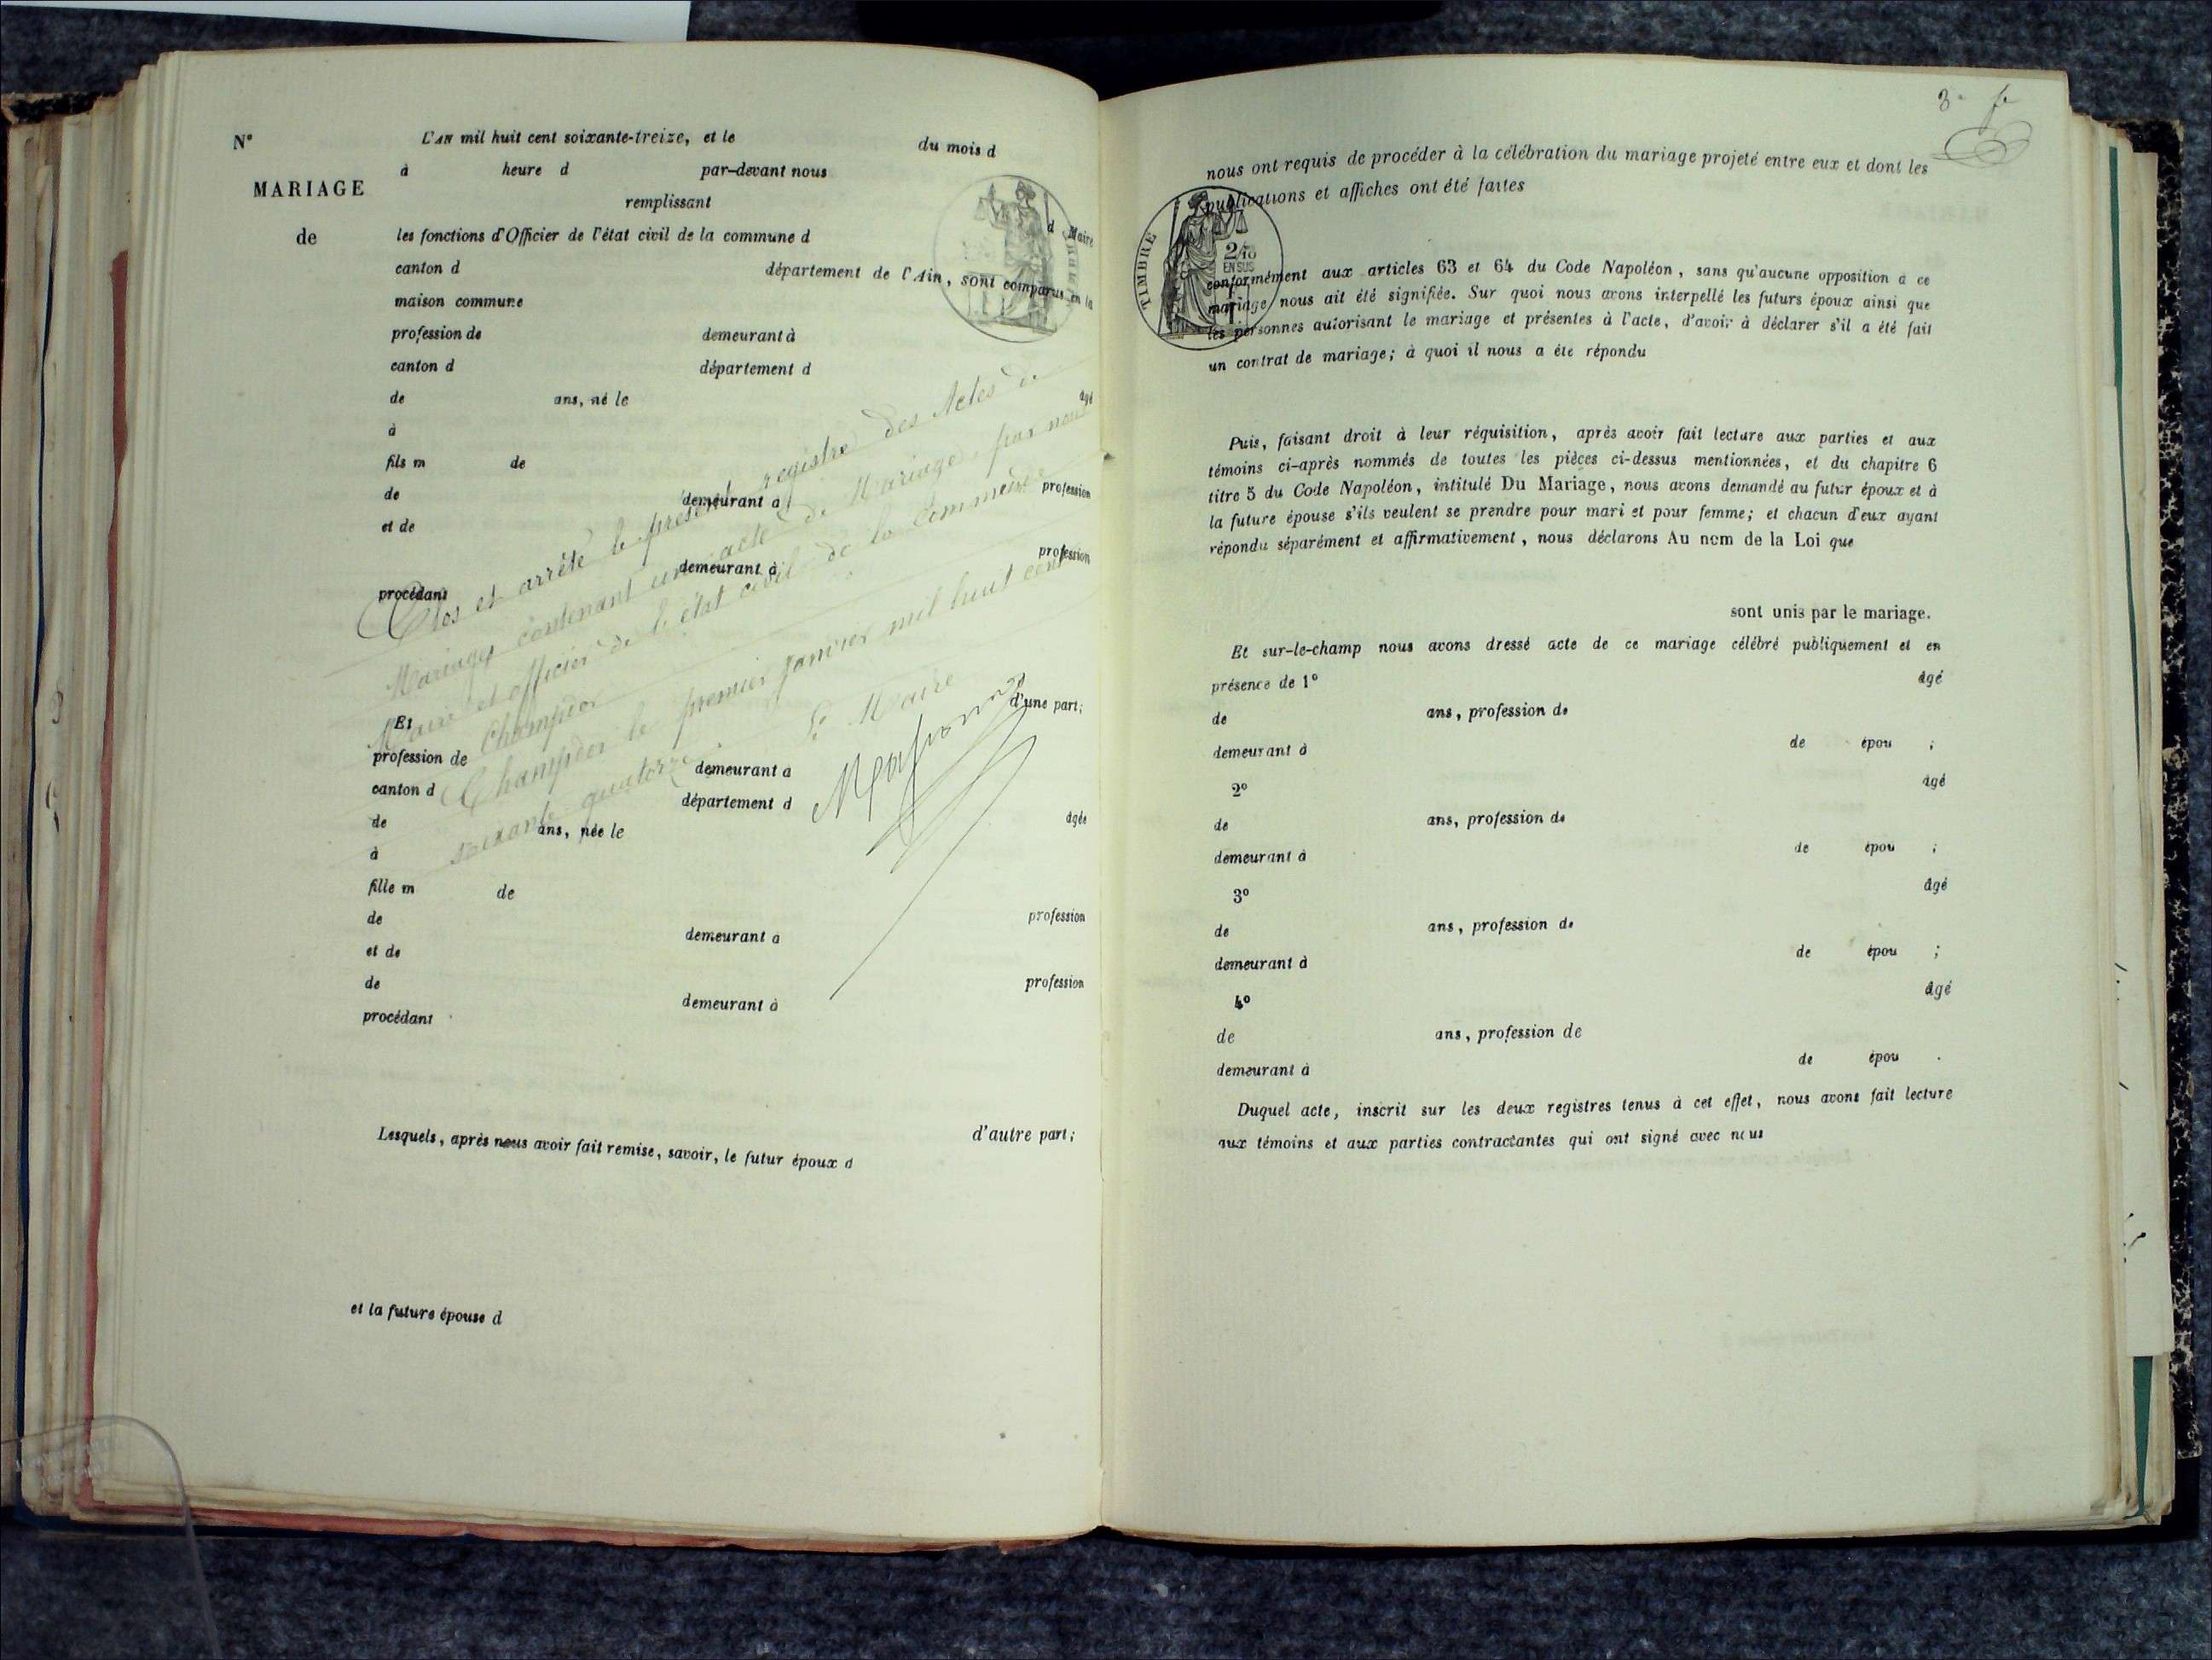 N°
MARIAGE
de
L'AN mil huit cent soixante-treize, et le du mois d
à heure d par-devant nous
remplissant
les fonctions d'Officier de l'état civil de la commune d
d Maire
canton d département de l'Ain, sont comparus en la
maison commune
profession de demeurant à
canton d département d
âgé
de ans, né le
à
fils m de
de demeurant à profession
et de
demeurant à profession
procédant
Clos et arrêté le présent registre des Actes de
Mariages contenant un acte de Mariage, par nous
Maire et officier de l'état civil de la commune
Champdor
Champdor le premier janvier mil huit cent
soixante quatorze
Le Maire
d'une part;
Et
profession de demeurant à
canton d département d
âgée
de ans, née le
à
fille m de
de demeurant à profession
et de
de demeurant à profession
procédant
d'autre part;
Lesquels, après nous avoir fait remise, savoir, le futur époux d
et la future épouse d
3e f
nous ont requis de procéder à la célébration du mariage projeté entre eux et dont les
publications et affiches ont été faites
TIMBRE
2/10
EN SUS
conformément aux articles 63 et 64 du Code Napoléon, sans qu'aucune opposition à ce
mariage nous ait été signifiée. Sur quoi nous avons interpellé les futurs époux ainsi que
les personnes autorisant le mariage et présentes à l'acte, d'avoir à déclarer s'il a été fait
un contrat de mariage; à quoi il nous a été répondu
Puis, faisant droit à leur réquisition, après avoir fait lecture aux parties et aux
témoins ci-après nommés de toutes les pièces ci-dessus mentionnées, et du chapitre 6
titre 5 du Code Napoléon, intitulé Du Mariage, nous avons demandé au futur époux et à
la future épouse s'ils veulent se prendre pour mari et pour femme; et chacun d'eux ayant
répondu séparément et affirmativement, nous déclarons Au nom de la Loi que
sont unis par le mariage.
Et sur-le-champ nous avons dressé acte de ce mariage célébré publiquement et en
présence de 1° âgé
de ans, profession de
demeurant à de épou ;
2° âgé
de ans, profession de
demeurant à de épou ;
3° âgé
de ans, profession de
demeurant à de épou ;
4° âgé
de ans, profession de
demeurant à de épou .
Duquel acte, inscrit sur les deux registres tenus à cet effet, nous avons fait lecture
aux témoins et aux parties contractantes qui ont signé avec nous